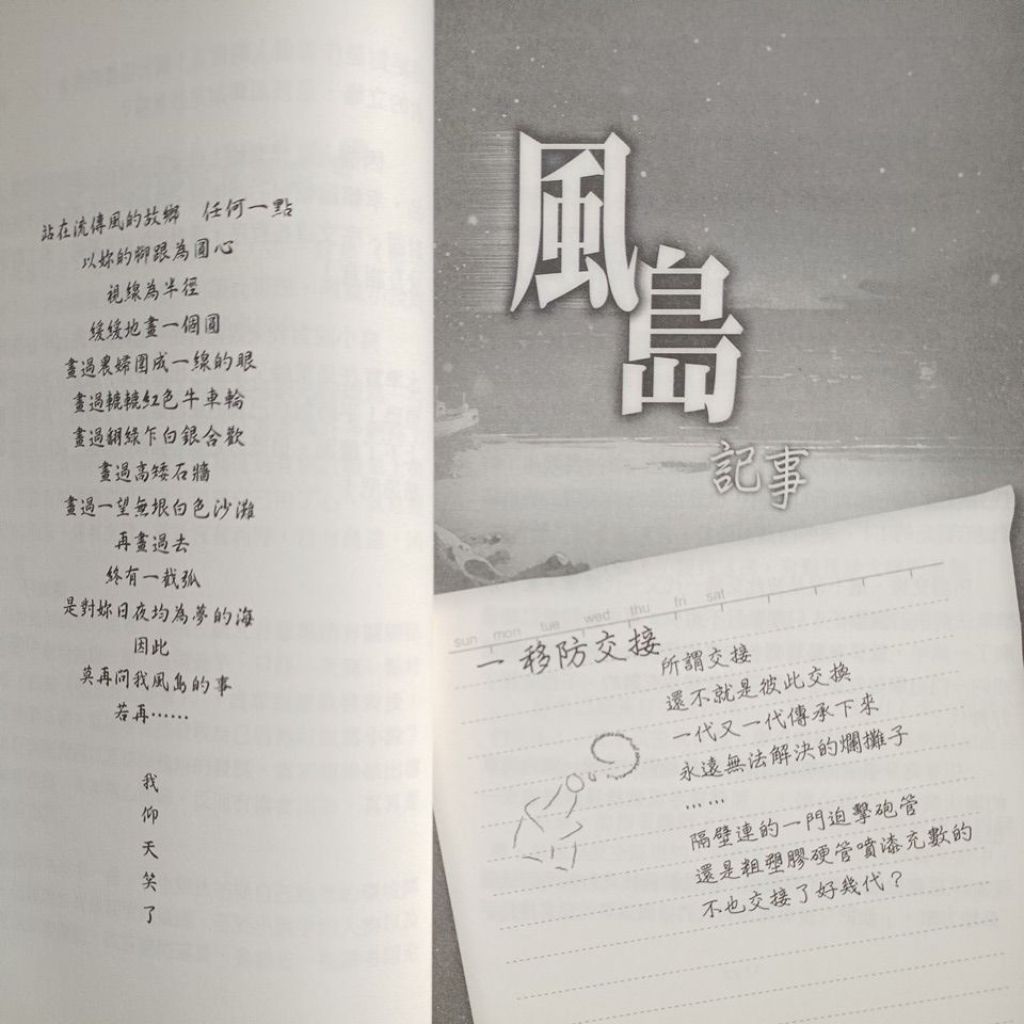 站在流傳風的故鄉　任何一點
以妳的腳跟為圓心
視線為半徑
緩緩地畫一個圓
畫過農婦圍成一線的眼
畫過轆轆紅色牛車輪
畫過翻綠乍白銀合歡
畫過高矮石牆
畫過一望無垠白色沙灘
再畫過去
終有一截弧
是對妳日夜均為夢的海
因此
莫再問我風島的事
若再……
我仰天笑了
風島
記事
sun mon tue wed thu fri sat
一 移防交接
所謂交接
還不就是彼此交換
一代又一代傳承下來
永遠無法解決的爛攤子
……
隔壁連的一門迫擊砲管
還是粗塑膠硬管噴漆充數的
不也交接了好幾代？